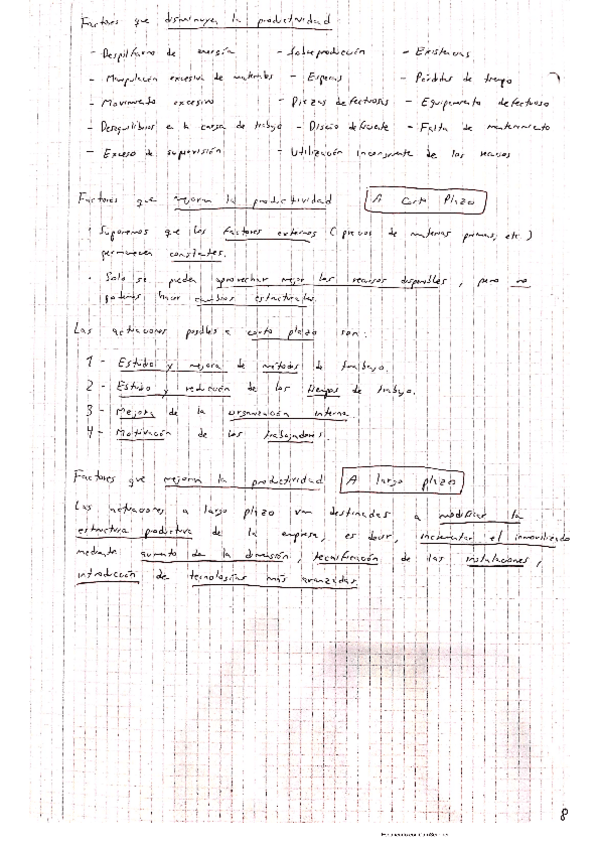 Factores que disminuyen la productividad
- Despilfarro de energía - Sobreproducción - Existencias
- Manipulación excesiva de materiales - Esperas - Pérdidas de tiempo
- Movimiento excesivo - Piezas defectuosas - Equipamento defectuoso
- Desequilibrios en la carga de trabajo - Diseño deficiente - Falta de mantenimiento
- Exceso de supervisión - Utilización incongruente de los recursos
Factores que mejoran la productividad A corto plazo
· Suponemos que los factores externos (precios de materias primas, etc.)
permanecen constantes.
· Solo se pueden aprovechar mejor los recursos disponibles, pero no
podemos hacer cambios estructurales.
Las actuaciones posibles a corto plazo son:
1 - Estudio y mejora de métodos de trabajo.
2 - Estudio y reducción de los tiempos de trabajo.
3 - Mejora de la organización interna.
4 - Motivación de los trabajadores.
Factores que mejoran la productividad A largo plazo
Las actuaciones a largo plazo van destinadas a modificar la
estructura productiva de la empresa, es decir, incrementar el inmovilizado
mediante aumento de la dimensión, tecnificación de las instalaciones,
introducción de tecnologías más avanzadas
8